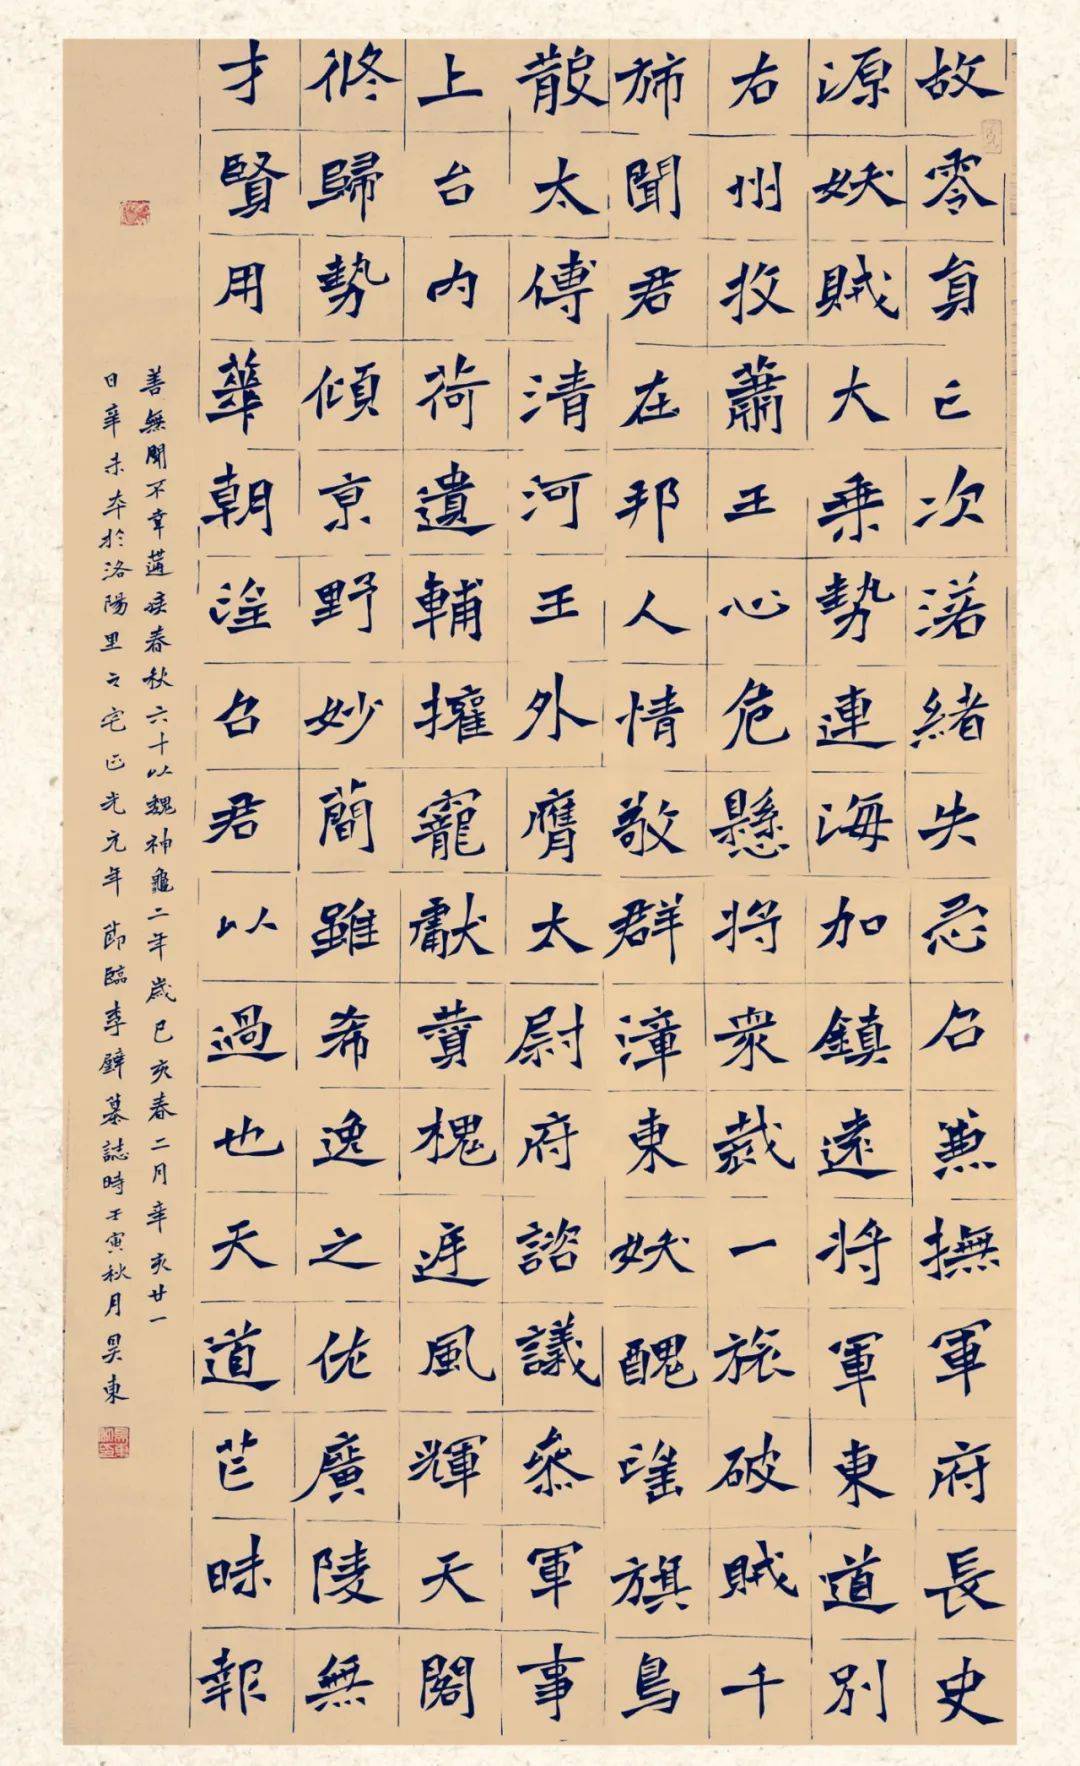 故零員亡次渃緒失忌召兼撫軍府長史
源妖賊大乗勢連海加鎮遠將軍東道別
右州牧蕭王心危懸將衆裁一旅破賊千
斾聞君在邦人情敬群漳東妖醜望旗鳥
散太傅清河王外膺太尉府諮議叅軍事
上台內荷遺輔擁寵獻賣槐遅風輝天閣
修歸勢傾京野妙簡雖希逸之佐廣陵無
才賢用華朝淫召君以過也天道芒昧報
善無聞不幸遘疾春秋六十以魏神龜二年歲己亥春二月辛亥廿一
日辛未卒於洛陽里之宅正光元年 節臨李璧墓誌時壬寅秋月昊東